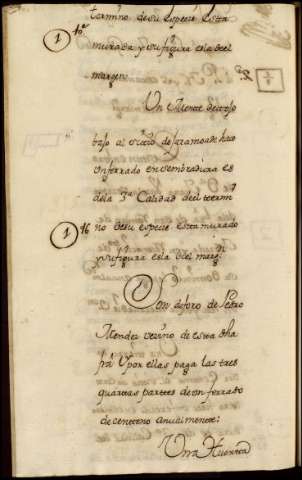 termino de su especie esta
murada y su figura es la del
margen
1
Un Monte de tojo
bajo al sitio de faramoade hace
un ferrado en sembradura es
de la 3ª Calidad del term
no de su especie esta murado
y su figura es la del marg.n
1
16
Son de foro de Pedro
Mendez vezino de esta dha
fra. Y por ellas paga las tres
quartas parttes de un ferrado
de centteno anualmente:
Una Huertta